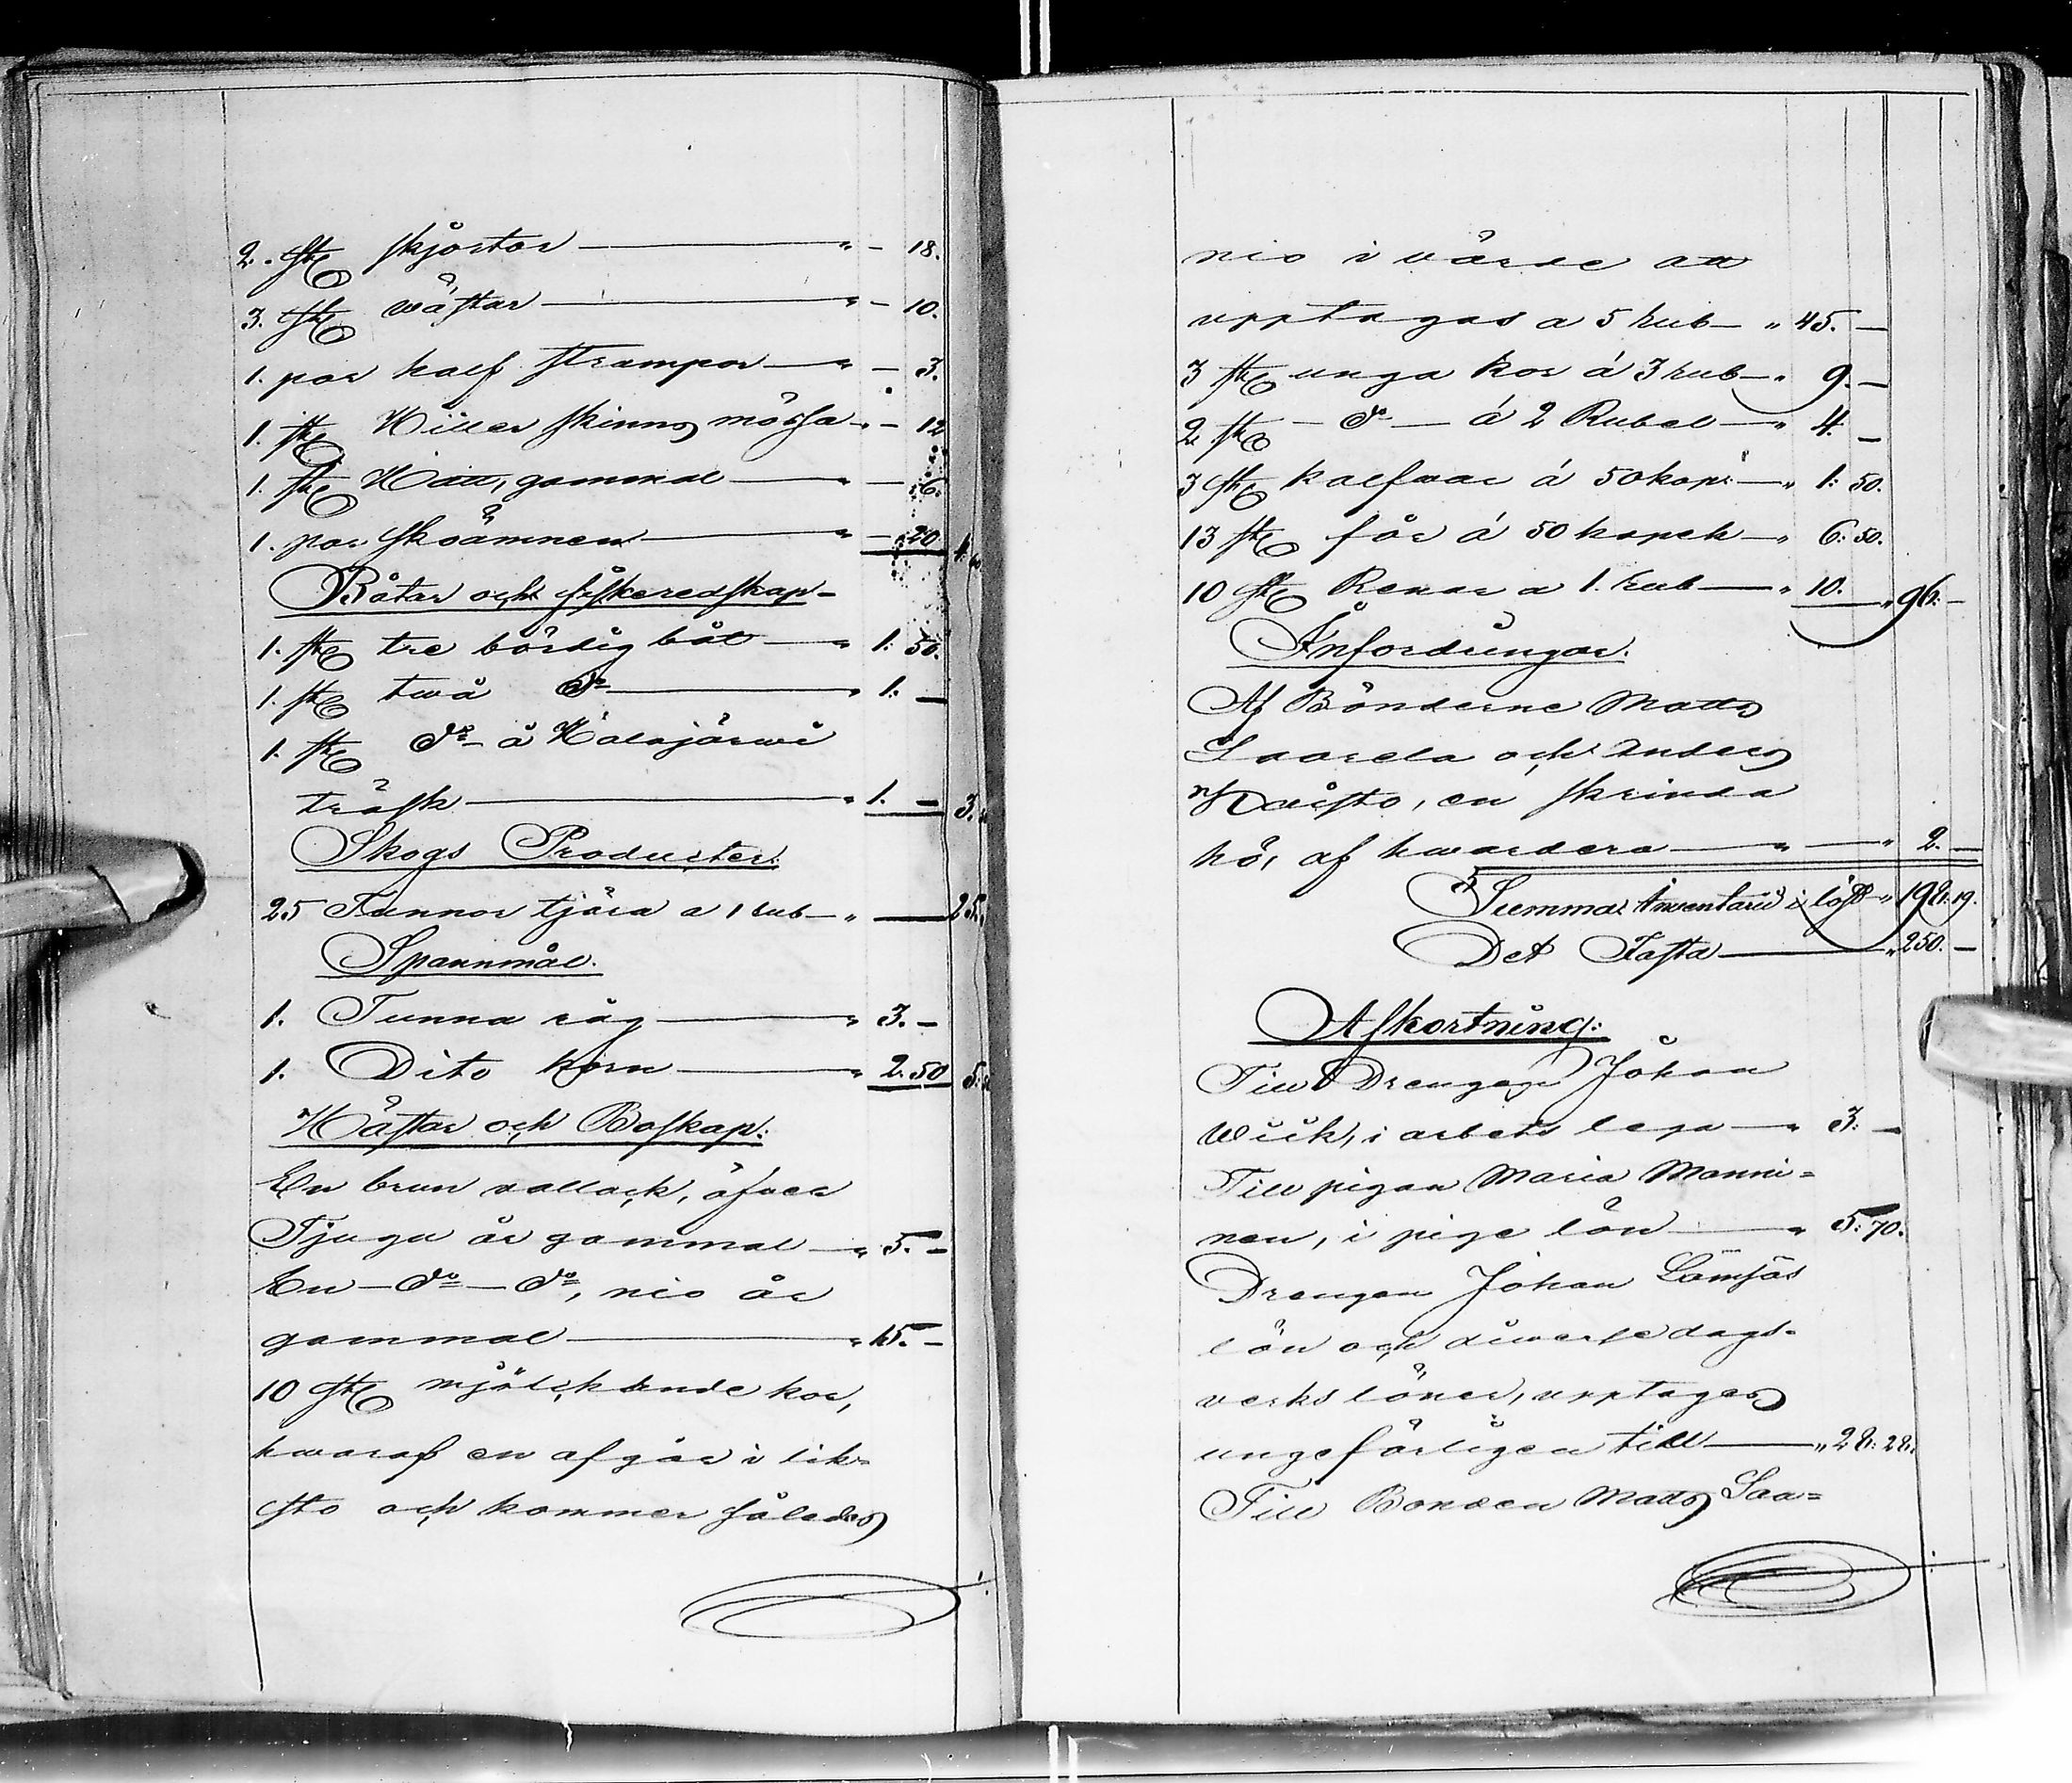 2. st skjortor — " — 18.
3. st wästar — " — 10.
1. par half strumpor — " — 3.
1. st Hiller skinns mössa — " — 12
1. st Hatt, gammal — " — 6.
1. par skoämnen — " — 20
Båtar och fiskeredskap —
1. st tre bördig båt — " 1: 50.
1. st twå do — " 1. —
1. st do å
träsk — " 1. — 3.
Skogs Producter.
25 Tunnor tjära a 1 rub — " — 25.
Spannmål.
1. Tunna råg — " 3. —
1. Dito korn — " 2. 50 5.
Hästar och Boskap:
En brun vallack, öfver
Tjugu år gammal — " 5. —
En — do — do, nio år
gammal — " 15. —
10 st mjölckande kor,
hwaraf en afgår i lik-
sto och kommer således
nio i värde att
upptagas a 5 rub — " 45. —
3 st unga kor á 3 rub — " 9. —
2 st — do — á 2 Rubel — " 4. —
3 st kalfwar á 50 kop: — " 1: 50.
13 st får á 50 kopek — " 6: 50.
10 st Renar a 1. rub — " 10. — " 96: —
Infordringar.
Af Bönderne Matts
Saarela och Anders
Naisto, en skrinda
hö, af hwardera — " — " 2. —
Summar Inventarii i löst — " 198: 19.
Det Fasta — " 250. —
Afkortning:
Till Drengen Johan
Wiik, i arbets lega — " 3: —
Till pigan Maria Manni=
nen, i pige lön — " 5: 70.
Drengen Johan Lämsäs
lön och diwerse dags-
verks löner, upptages
ungefärligen till — " 28: 28.
Till Bonden Matts Saa=